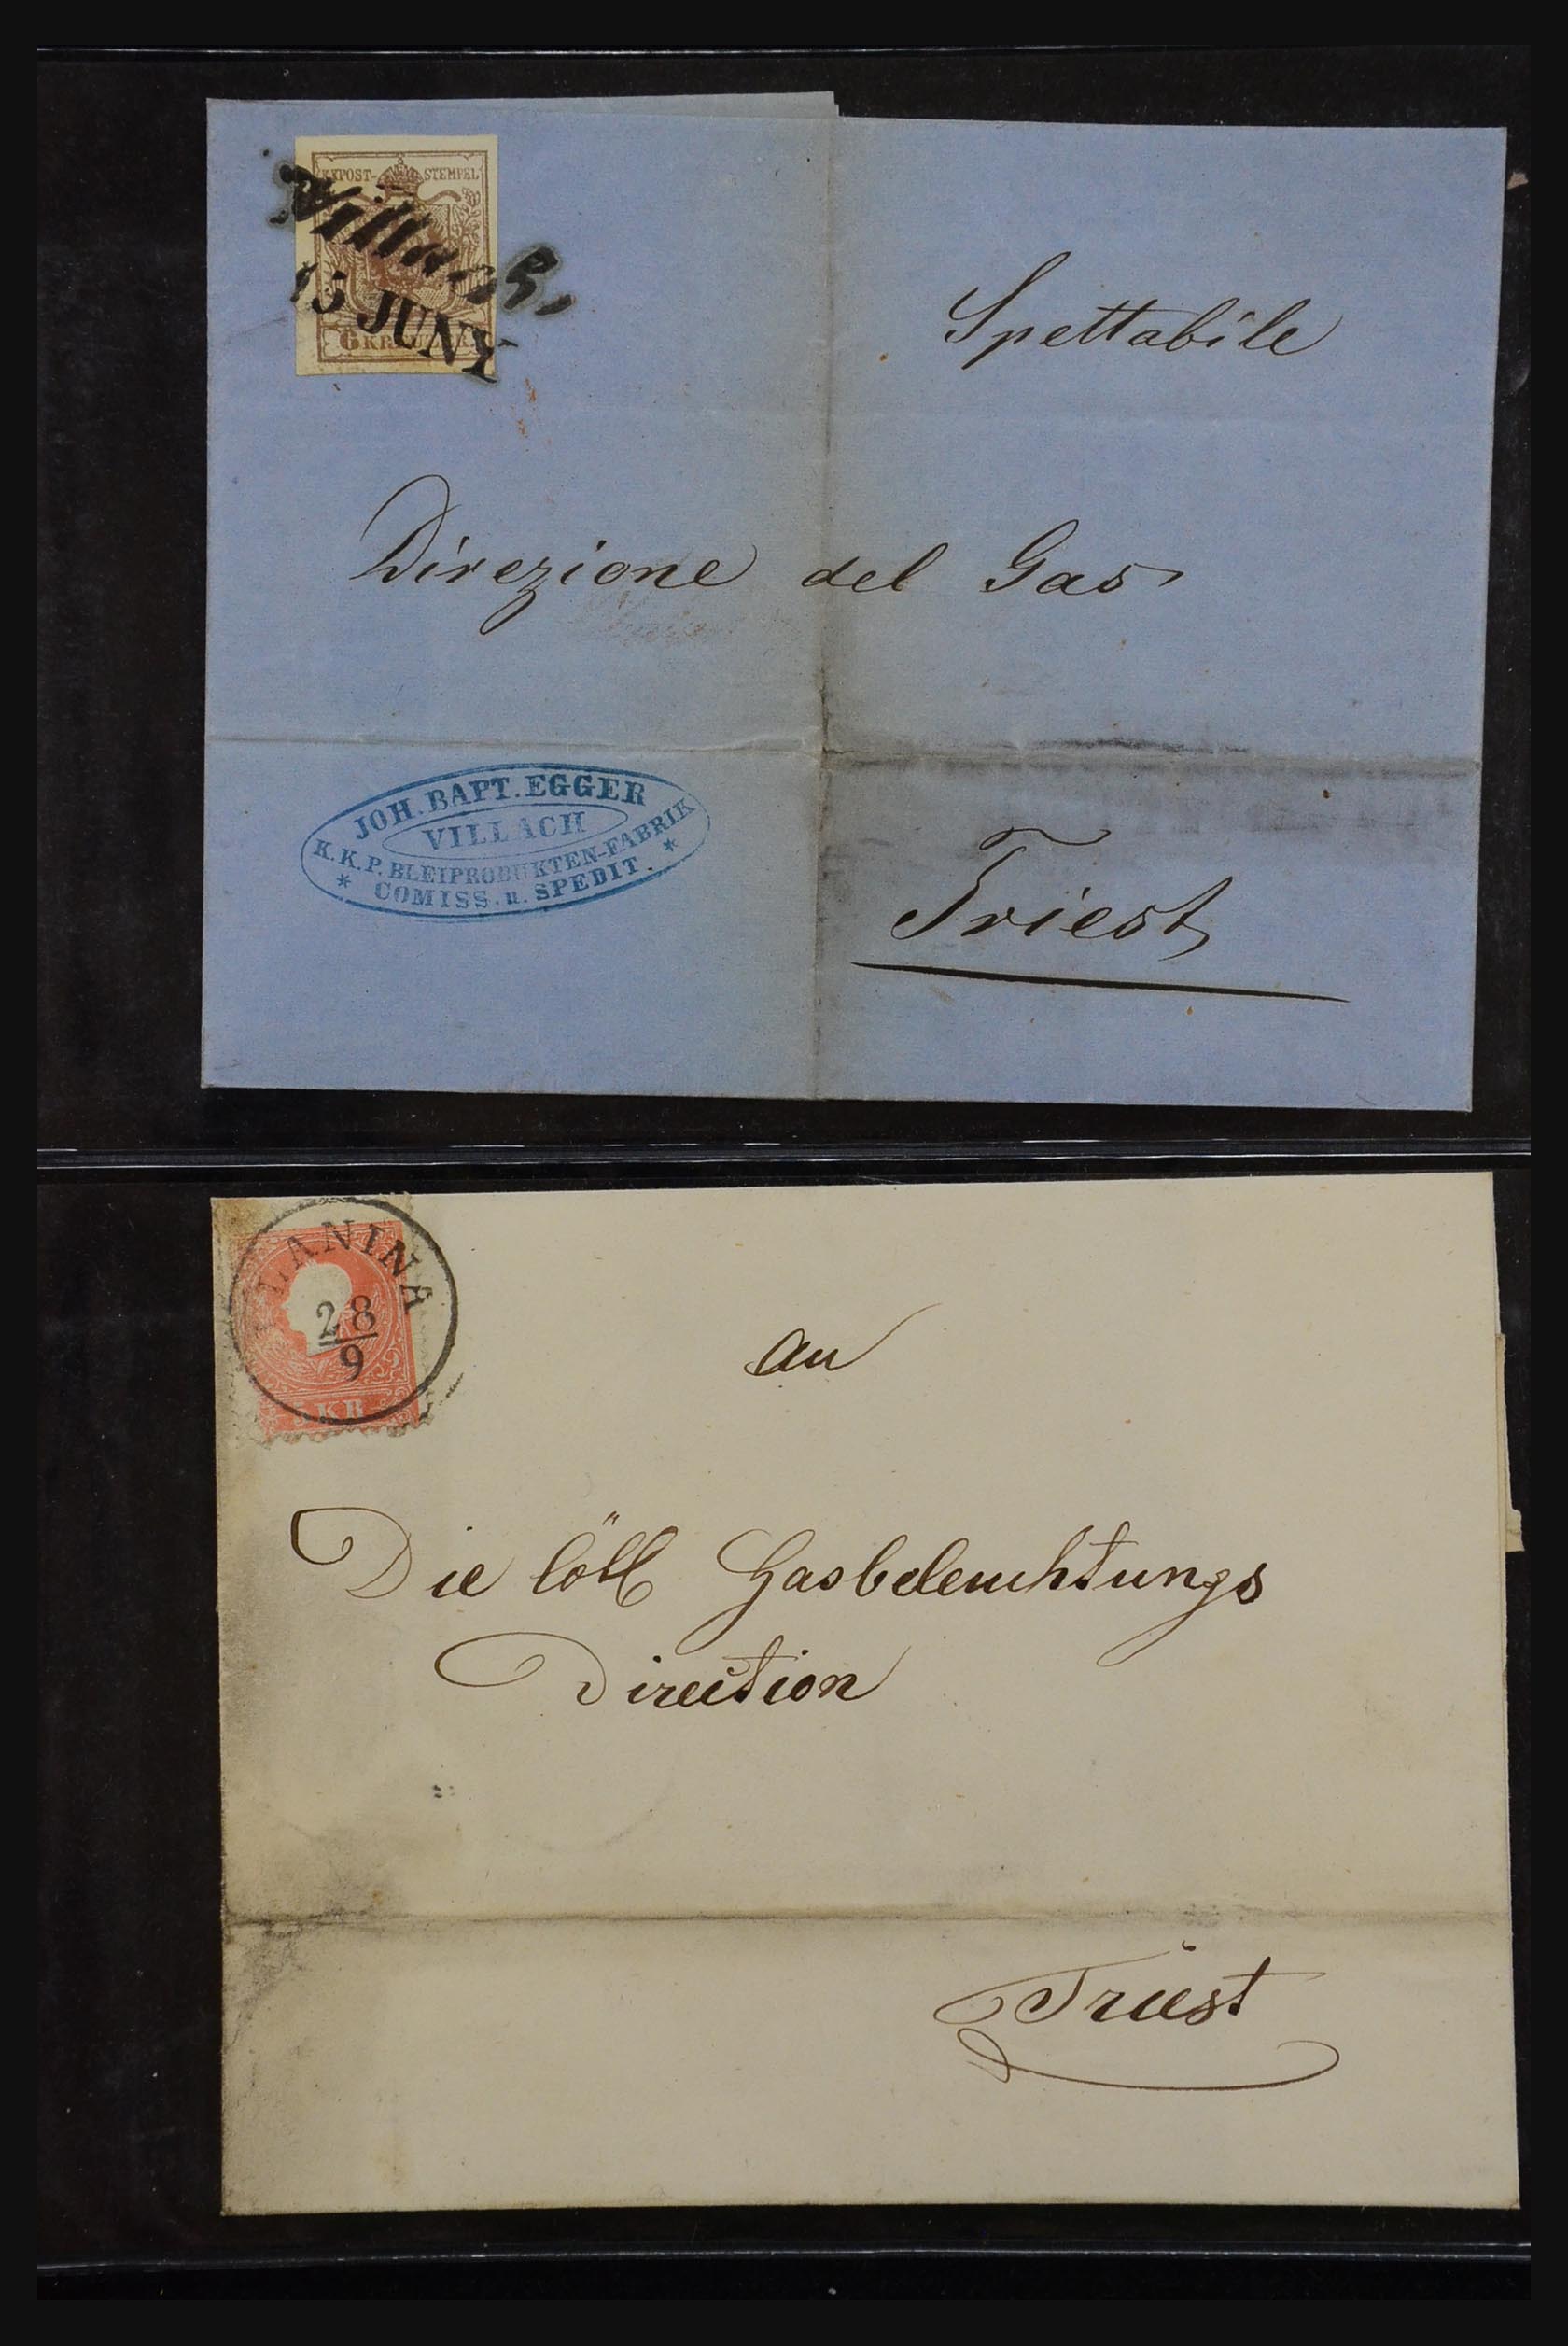 KKPOST- STEMPEL
Villach.
15 JUNY
6 KREUZER
Spettabile
Direzione del Gas
JOH. BAPT. EGGER
VILLACH
K.K.P. BLEIPRODUKTEN-FABRIK
* COMISS. u. SPEDIT. *
Triest
PLANINA
28
9
5 KR
An
Die löbl Gasbeleuchtungs
Direction
Triest